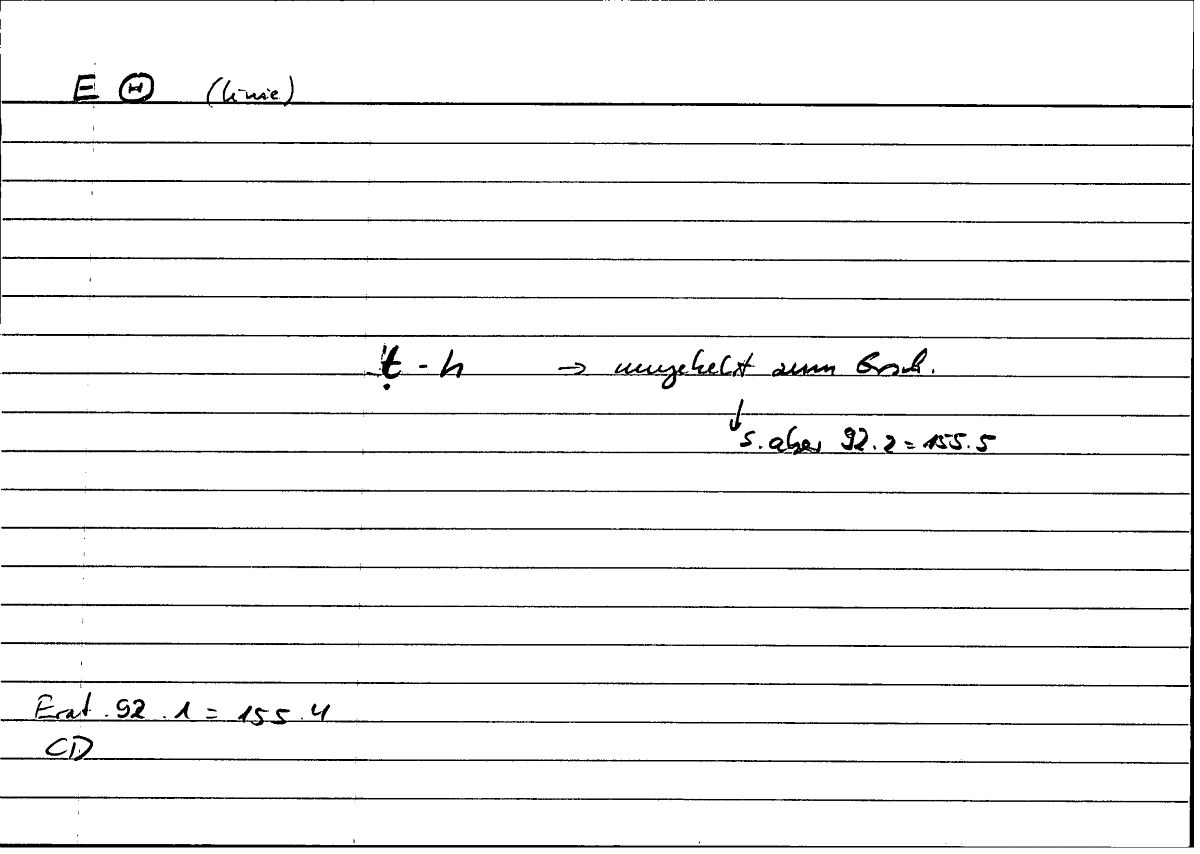 E Θ (Linie)
ṭ - h → umgekehrt zum
↓
s. aber 92.2 = 155.5
Erat. 92.1 = 155.4
CD